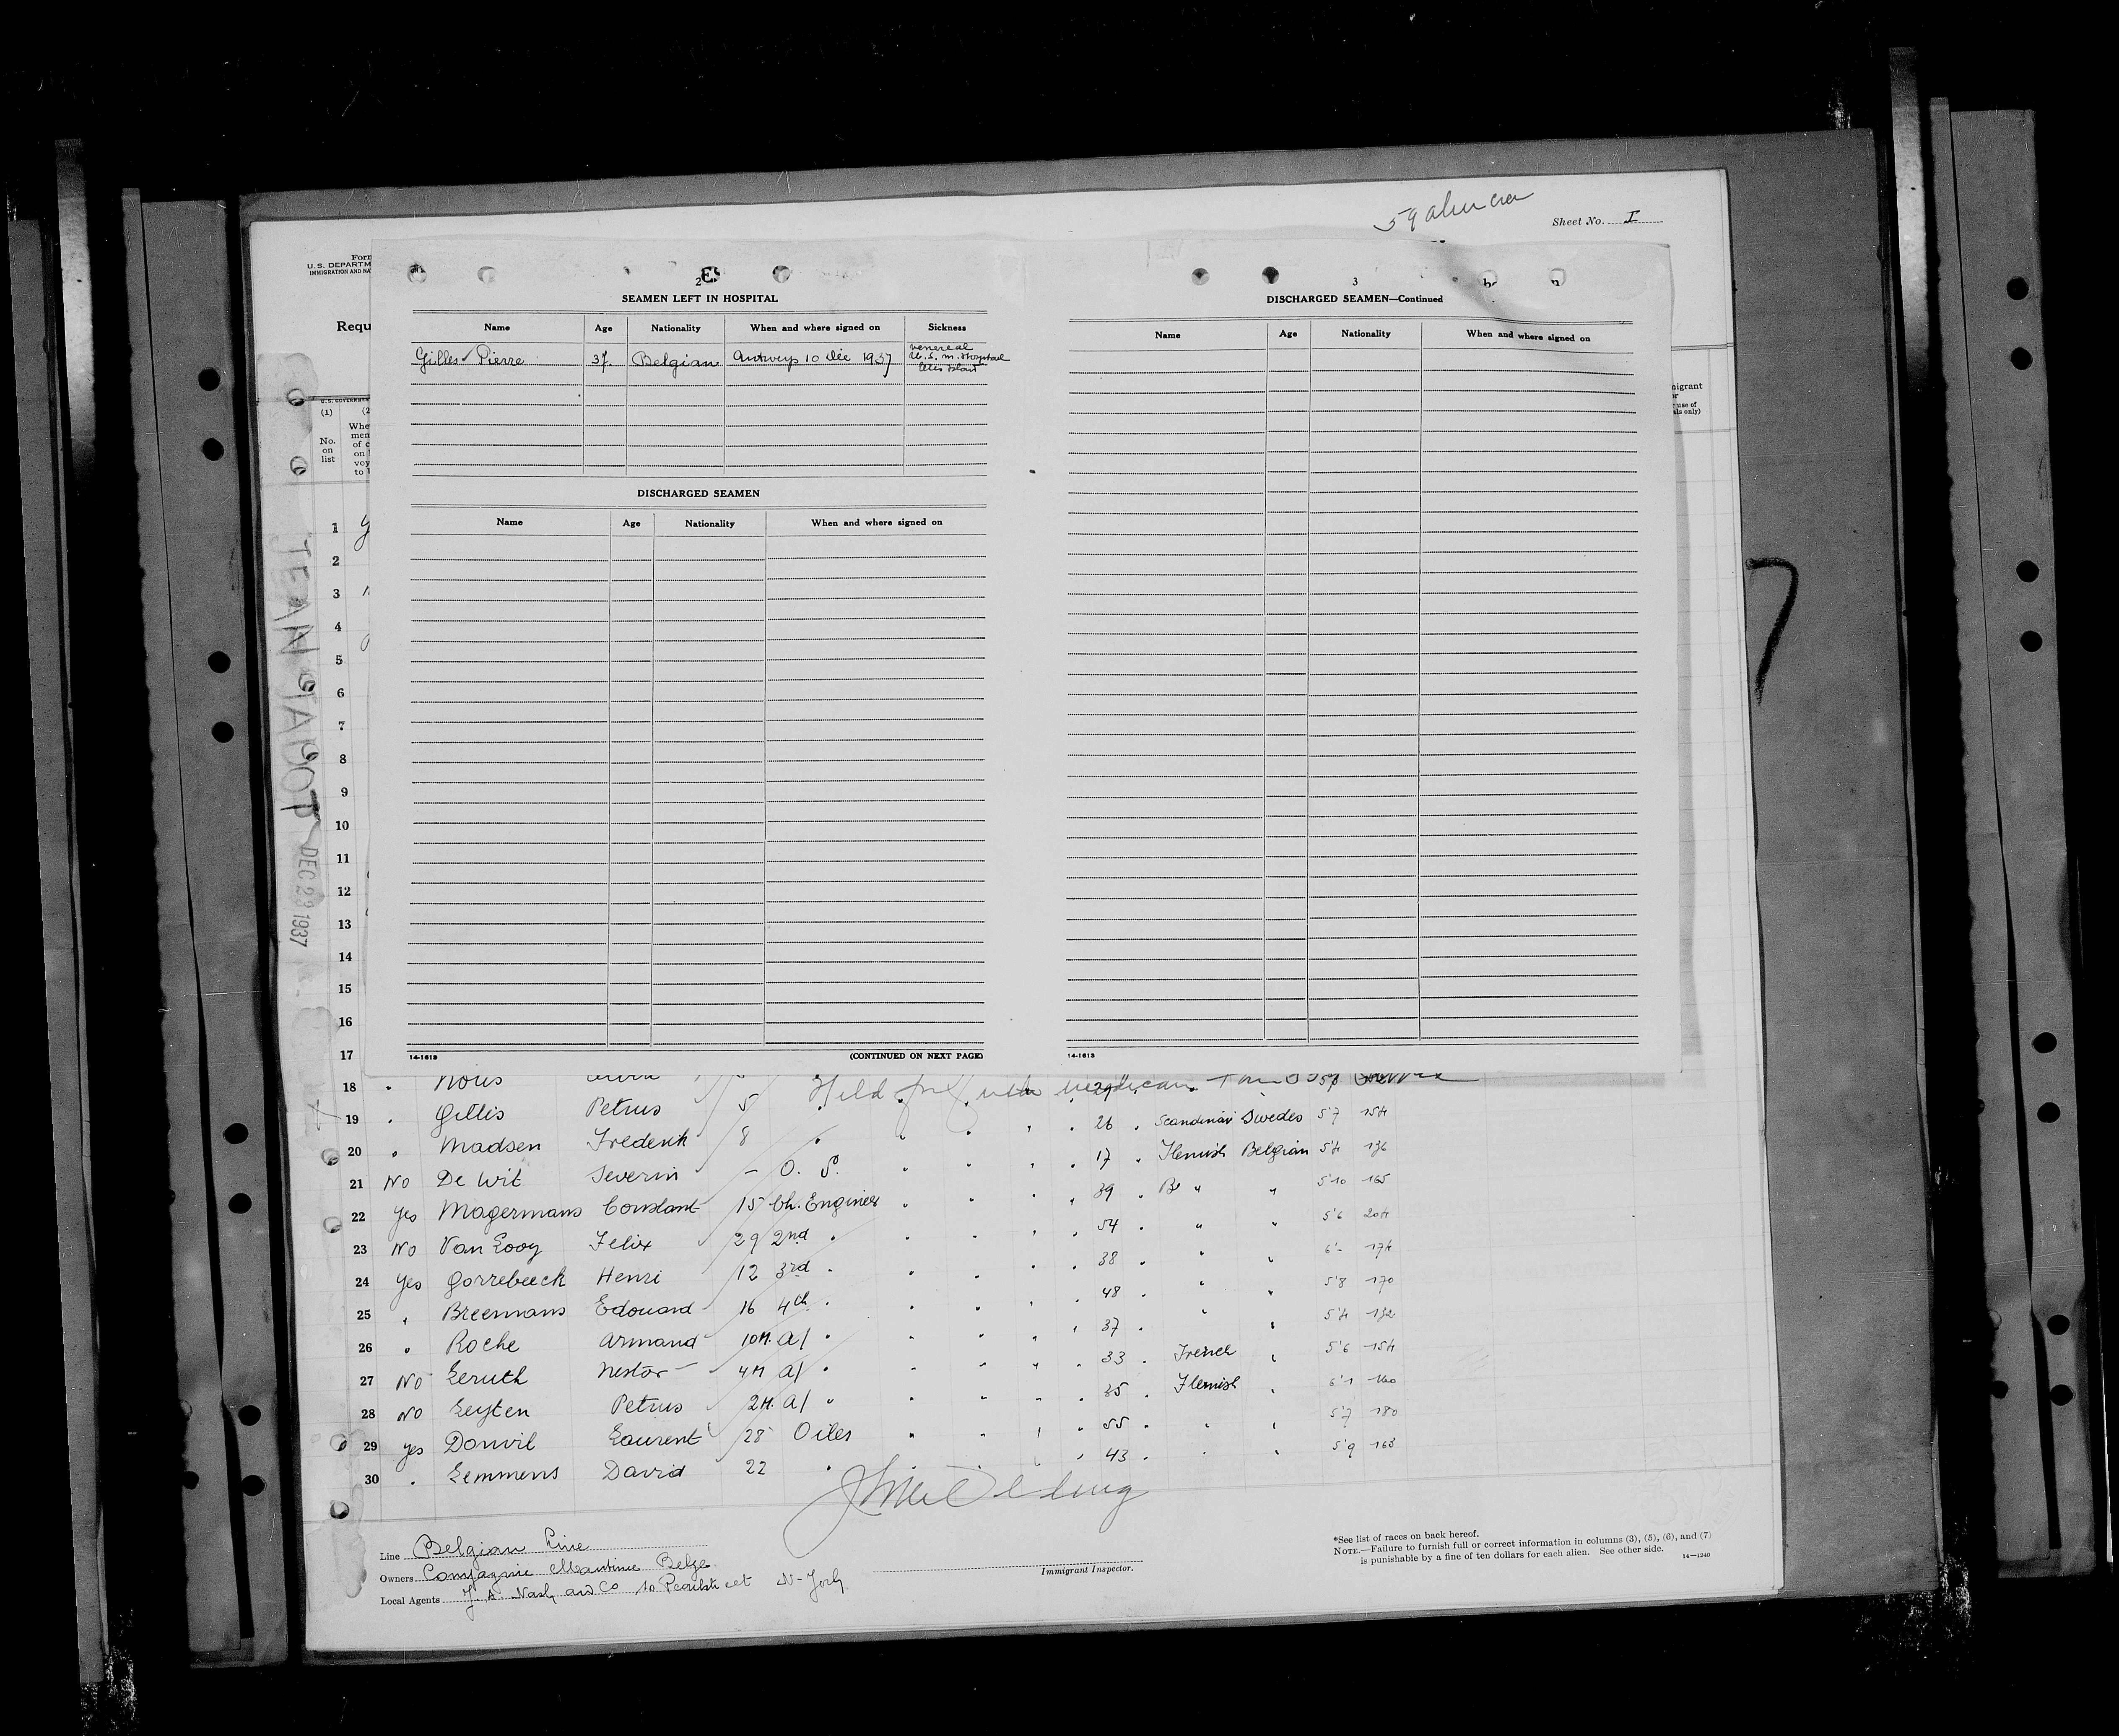 59 alien crew
Sheet No. I
Form
U.S. DEPARTM
IMMIGRATION AND NA
Requ
2
SEAMEN LEFT IN HOSPITAL
Name Age Nationality When and where signed on Sickness
Gilles Pierre 37. Belgian Antwerp 10 Dec 1937 venereal
U. S. M. Hospital
Ellis Island
DISCHARGED SEAMEN
Name Age Nationality When and where signed on
14-1613 (CONTINUED ON NEXT PAGE)
3
DISCHARGED SEAMEN—Continued
Name Age Nationality When and where signed on
14-1613
migrant
use of
als only)
(1) (2
No. on list
Whe
men
of c
on
voy
to
JEAN JADOT DEC 29 1937
7
1
2
3
4
5
6
7
8
9
10
11
12
13
14
15
16
17
18 " Nous
Held for
19 " Gillis Petrus 5
20 " Madsen Frederik 8 26 Scandinav Swedes 5'7 154
21 No De Wit Severin - O. S. 17 Flemish Belgian 5'4 136
22 Yes Magermans Constant 15 Ch. Engineer 39 " " 5'10 165
23 No Van Looy Felix 29 2nd " 54 " " 5'6 204
24 Yes Gorrebeeck Henri 12 3rd " 38 " " 6'- 174
25 " Breemans Edouard 16 4th " 48 " " 5'8 170
26 " Roche Armand 10M. A/ " 37 " " 5'4 132
27 No Leruth Nestor 4M A/ " 33 French " 5'6 154
28 No Leyten Petrus 2M. A/ " 35 Flemish " 6'1 160
29 Yes Donvil Laurent 28 Oiler 55 " " 5'7 180
30 " Lemmens David 22 " 43 " " 5'9 163
Line Belgian Line
Owners Compagnie Maritime Belge
Local Agents J. A. Nash and Co 10 Pearlstreet N-York
Immigrant Inspector.
*See list of races on back hereof.
NOTE.—Failure to furnish full or correct information in columns (3), (5), (6), and (7)
is punishable by a fine of ten dollars for each alien. See other side. 14—1240